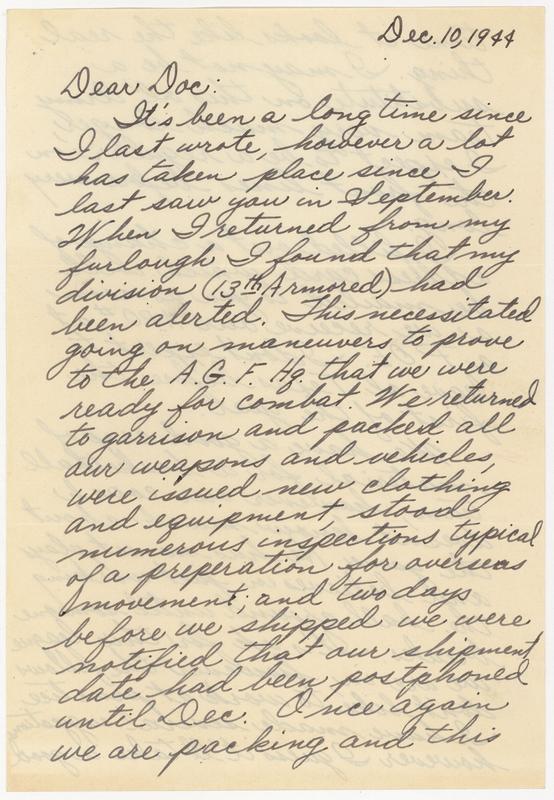 Dec. 10, 1944
Dear Doc:
It's been a long time since
I last wrote, however a lot
has taken place since I
last saw you in September.
When I returned from my
furlough I found that my
division (13th Armored) had
been alerted. This necessitated
going on maneuvers to prove
to the A.G.F. Hq. that we were
ready for combat. We returned
to garrison and packed all
our weapons and vehicles,
were issued new clothing
and equipment, stood
numerous inspections typical
of a preperation for overseas
movement; and two days
before we shipped we were
notified that our shipment
date had been postphoned
until Dec. Once again
we are packing and this